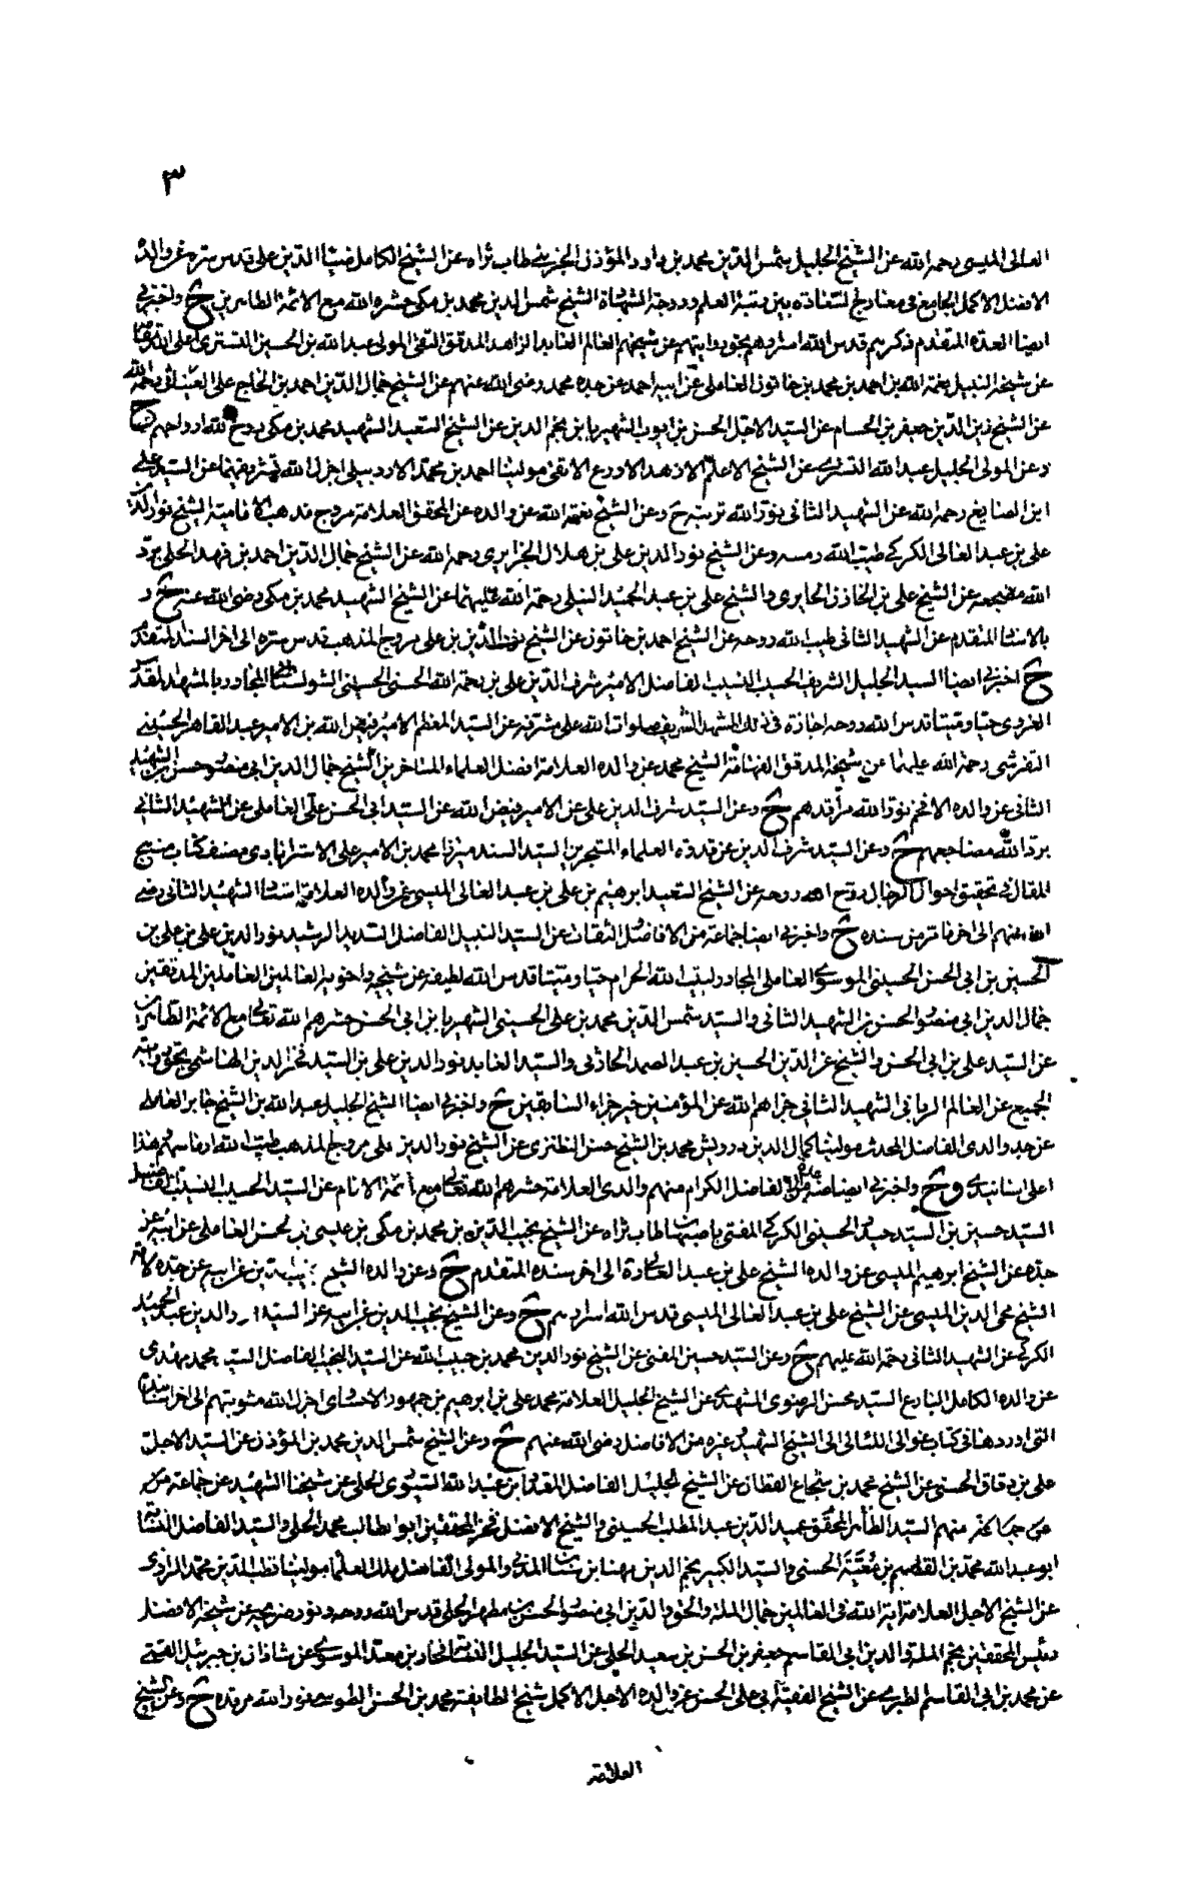 ٣
العالى الميسى رحمه الله عن الشيخ الجليل شمس الدين محمد بن داود المؤذن الجزينى طاب ثراه عن الشيخ الكامل ضياء الدين على قدس سره عن والده
الافضل الاكمل الجامع فى معارج السعادة بين رتبة العلم ودرجة الشهادة الشيخ شمس الدين محمد بن مكى حشره الله مع الائمة الطاهرين ح واخبرنى
ايضا العدة المتقدم ذكرهم قدس الله اسرارهم بحق روايتهم عن شيخهم العالم العابد الزاهد المدقق التقى المولى عبد الله بن الحسين التسترى اعلى الله مقامه
عن شيخه النبيل نعمة الله بن احمد بن محمد بن خاتون العاملى عن ابيه احمد عن جده محمد رضى الله عنهم عن الشيخ جمال الدين احمد بن الحاج على العينائى رحمه الله
عن الشيخ زين الدين جعفر بن الحسام عن السيد الاجل الحسن بن ايوب الشهير بابن نجم الدين عن الشيخ السعيد الشهيد محمد بن مكى روح الله ارواحهم ح
وعن المولى الجليل عبد الله التسترى عن الشيخ الاعلم الازهد الاورع الاتقى مولينا احمد بن محمد الاردبيلى اجزل الله تشريفهما عن السيد على
ابن الصايغ رحمه الله عن الشهيد الثانى نور الله تربته ح وعن الشيخ نعمة الله عن والده عن المحقق العلامة مروج مذهب الامامية الشيخ نور الدين
على بن عبد العالى الكركى طيب الله رمسه وعن الشيخ نور الدين على بن هلال الجزايرى رحمه الله عن الشيخ جمال الدين احمد بن فهد الحلى برد
الله مضجعه عن الشيخ على بن الخازن الحايرى والشيخ على بن عبد الحميد النيلى رحمة الله عليهما عن الشيخ الشهيد محمد بن مكى رضى الله عنه ح و
بالاسناد المتقدم عن الشهيد الثانى طيب الله روحه عن الشيخ احمد بن خاتون عن الشيخ نور الدين بن على مروج المذهب قدس سره الى اخر السند المتقدم
ح اخبرنى ايضا السيد الجليل الشريف الحسيب النسيب الفاضل الامير شرف الدين على بن رحمة الله الحسنى الحسينى الشولستانى المجاور بالمشهد المقدس
الغروى حيا وميتا قدس الله روحه اجازة فى ذلك المشهد الشريف صلوات الله على مشرفه عن السيد المعظم الامير فيض الله بن الامير عبد القاهر الحسينى
التفرشى رحمة الله عليهما عن شيخه المدقق الفهامة الشيخ محمد عن والده العلامة افضل العلماء المتاخرين الشيخ جمال الدين ابى منصور حسن بن الشهيد
الثانى عن والده الافخم نور الله مراقدهم ح وعن السيد شرف الدين على عن الامير فيض الله عن السيد ابى الحسن على العاملى عن الشهيد الثانى
برد الله مضاجعهم ح وعن السيد شرف الدين عن قدوة العلماء المتبحرين السيد السند ميرزا محمد بن الامير على الاسترابادى مصنف كتاب منهج
المقال فى تحقيق احوال الرجال روح الله روحه عن الشيخ السعيد ابرهيم بن على بن عبد العالى الميسى عن والده العلامة استاد الشهيد الثانى رضى
الله عنهم الى اخر ما مر من سنده ح واخبرنى ايضا جماعة من الافاضل الثقات عن السيد النبيل الفاضل السديد الرشيد نور الدين على بن على بن
الحسين بن ابى الحسن الحسينى الموسوى العاملى المجاور لبيت الله الحرام حيا وميتا قدس الله لطيفه عن شيخيه واخويه العالمين العاملين المدققين
جمال الدين ابى منصور الحسن بن الشهيد الثانى والسيد شمس الدين محمد بن على الحسينى الشهير بابن ابى الحسن حشرهم الله تعالى مع الائمة الطاهرين
عن السيد على بن ابى الحسن والشيخ عز الدين الحسين بن عبد الصمد الحارثى والسيد العابد نور الدين على بن السيد فخر الدين الهاشمى بحق روايته
الجميع عن العالم الربانى الشهيد الثانى جزاهم الله عن المؤمنين خير جزاء السابقين ح واخبرنى ايضا الشيخ الجليل عبد الله بن الشيخ جابر العاملى
عن جد والدى الفاضل المحدث مولينا كمال الدين درويش محمد بن الشيخ حسن النطنزى عن الشيخ نور الدين على مروج المذهب طيب الله ارماسهم هذا
اعلى اسانيدى و ح واخبرنى ايضا عدة من الفاضل الكرام منهم والدى العلامة حشرهم الله تعالى مع ائمة الانام عن السيد الحسيب النسيب الفاضل
السيد حسين بن السيد حيدر الحسينى الكركى المفتى باصبهان طاب ثراه عن الشيخ نجيب الدين بن محمد بن مكى بن عيسى بن الحسن العاملى عن ابيه عن
جده عن الشيخ ابرهيم الميسى عن والده الشيخ على بن عبد العالى الى اخر سنده المتقدم ح وعن والده الشيخ عن ابيه عن جده لامه
الشيخ محى الدين الميسى عن الشيخ على بن عبد العالى الميسى قدس الله اسرارهم ح وعن الشيخ نجيب الدين عن ابيه عن السيد والدين عبد الحميد
الكركى عن الشهيد الثانى رحمة الله عليهم ح وعن السيد حسين المفتى عن الشيخ نور الدين محمد بن حبيب الله عن السيد النجيب الفاضل السيد محمد مهدى
عن والده الكامل البارع السيد محسن الرضوى المشهدى عن الشيخ الجليل العلامة محمد على بن ابرهيم بن جمهور الاحساى اجزل الله مثوبتهم الى اخر اسانيده
التى اوردها فى كتاب غوالى اللئالى الى الشيخ الشهيد وغيره من الافاضل رضى الله عنهم ح وعن الشيخ شمس الدين محمد بن المؤذن عن السيد الاجل
على بن دقاق الحسنى عن الشيخ محمد بن شجاع القطان عن الشيخ الجليل الفاضل المقداد بن عبد الله السيورى الحلى عن شيخنا الشهيد عن جماعة من
منهم السيد الطاهر المحقق عميد الدين عبد المطلب الحسينى والشيخ الافضل فخر المحققين ابو طالب محمد الحلى والسيد الفاضل النسابة
ابو عبد الله محمد بن القاسم بن معية الحسنى والسيد الكبير نجم الدين مهنا بن سنان المدنى والمولى الفاضل ملك العلماء مولينا قطب الدين محمد الرازى
عن الشيخ الاجل العلامة اية الله فى العالمين جمال الملة والحق والدين ابى منصور الحسن بن مطهر الحلى قدس الله روحه ونور ضريحه عن شيخه الافضل
رئيس المحققين نجم الملة والدين ابى القاسم جعفر بن الحسن بن سعيد الحلى عن السيد الجليل النسابة فخار بن معد الموسوى عن شاذان بن جبرئيل القمى
عن محمد بن ابى القاسم الطبرى عن الشيخ الفقيه ابى على الحسن عن والده الاجل الاكمل شيخ الطايفة محمد بن الحسن الطوسى نور الله مرقده ح وعن الشيخ
العلامة